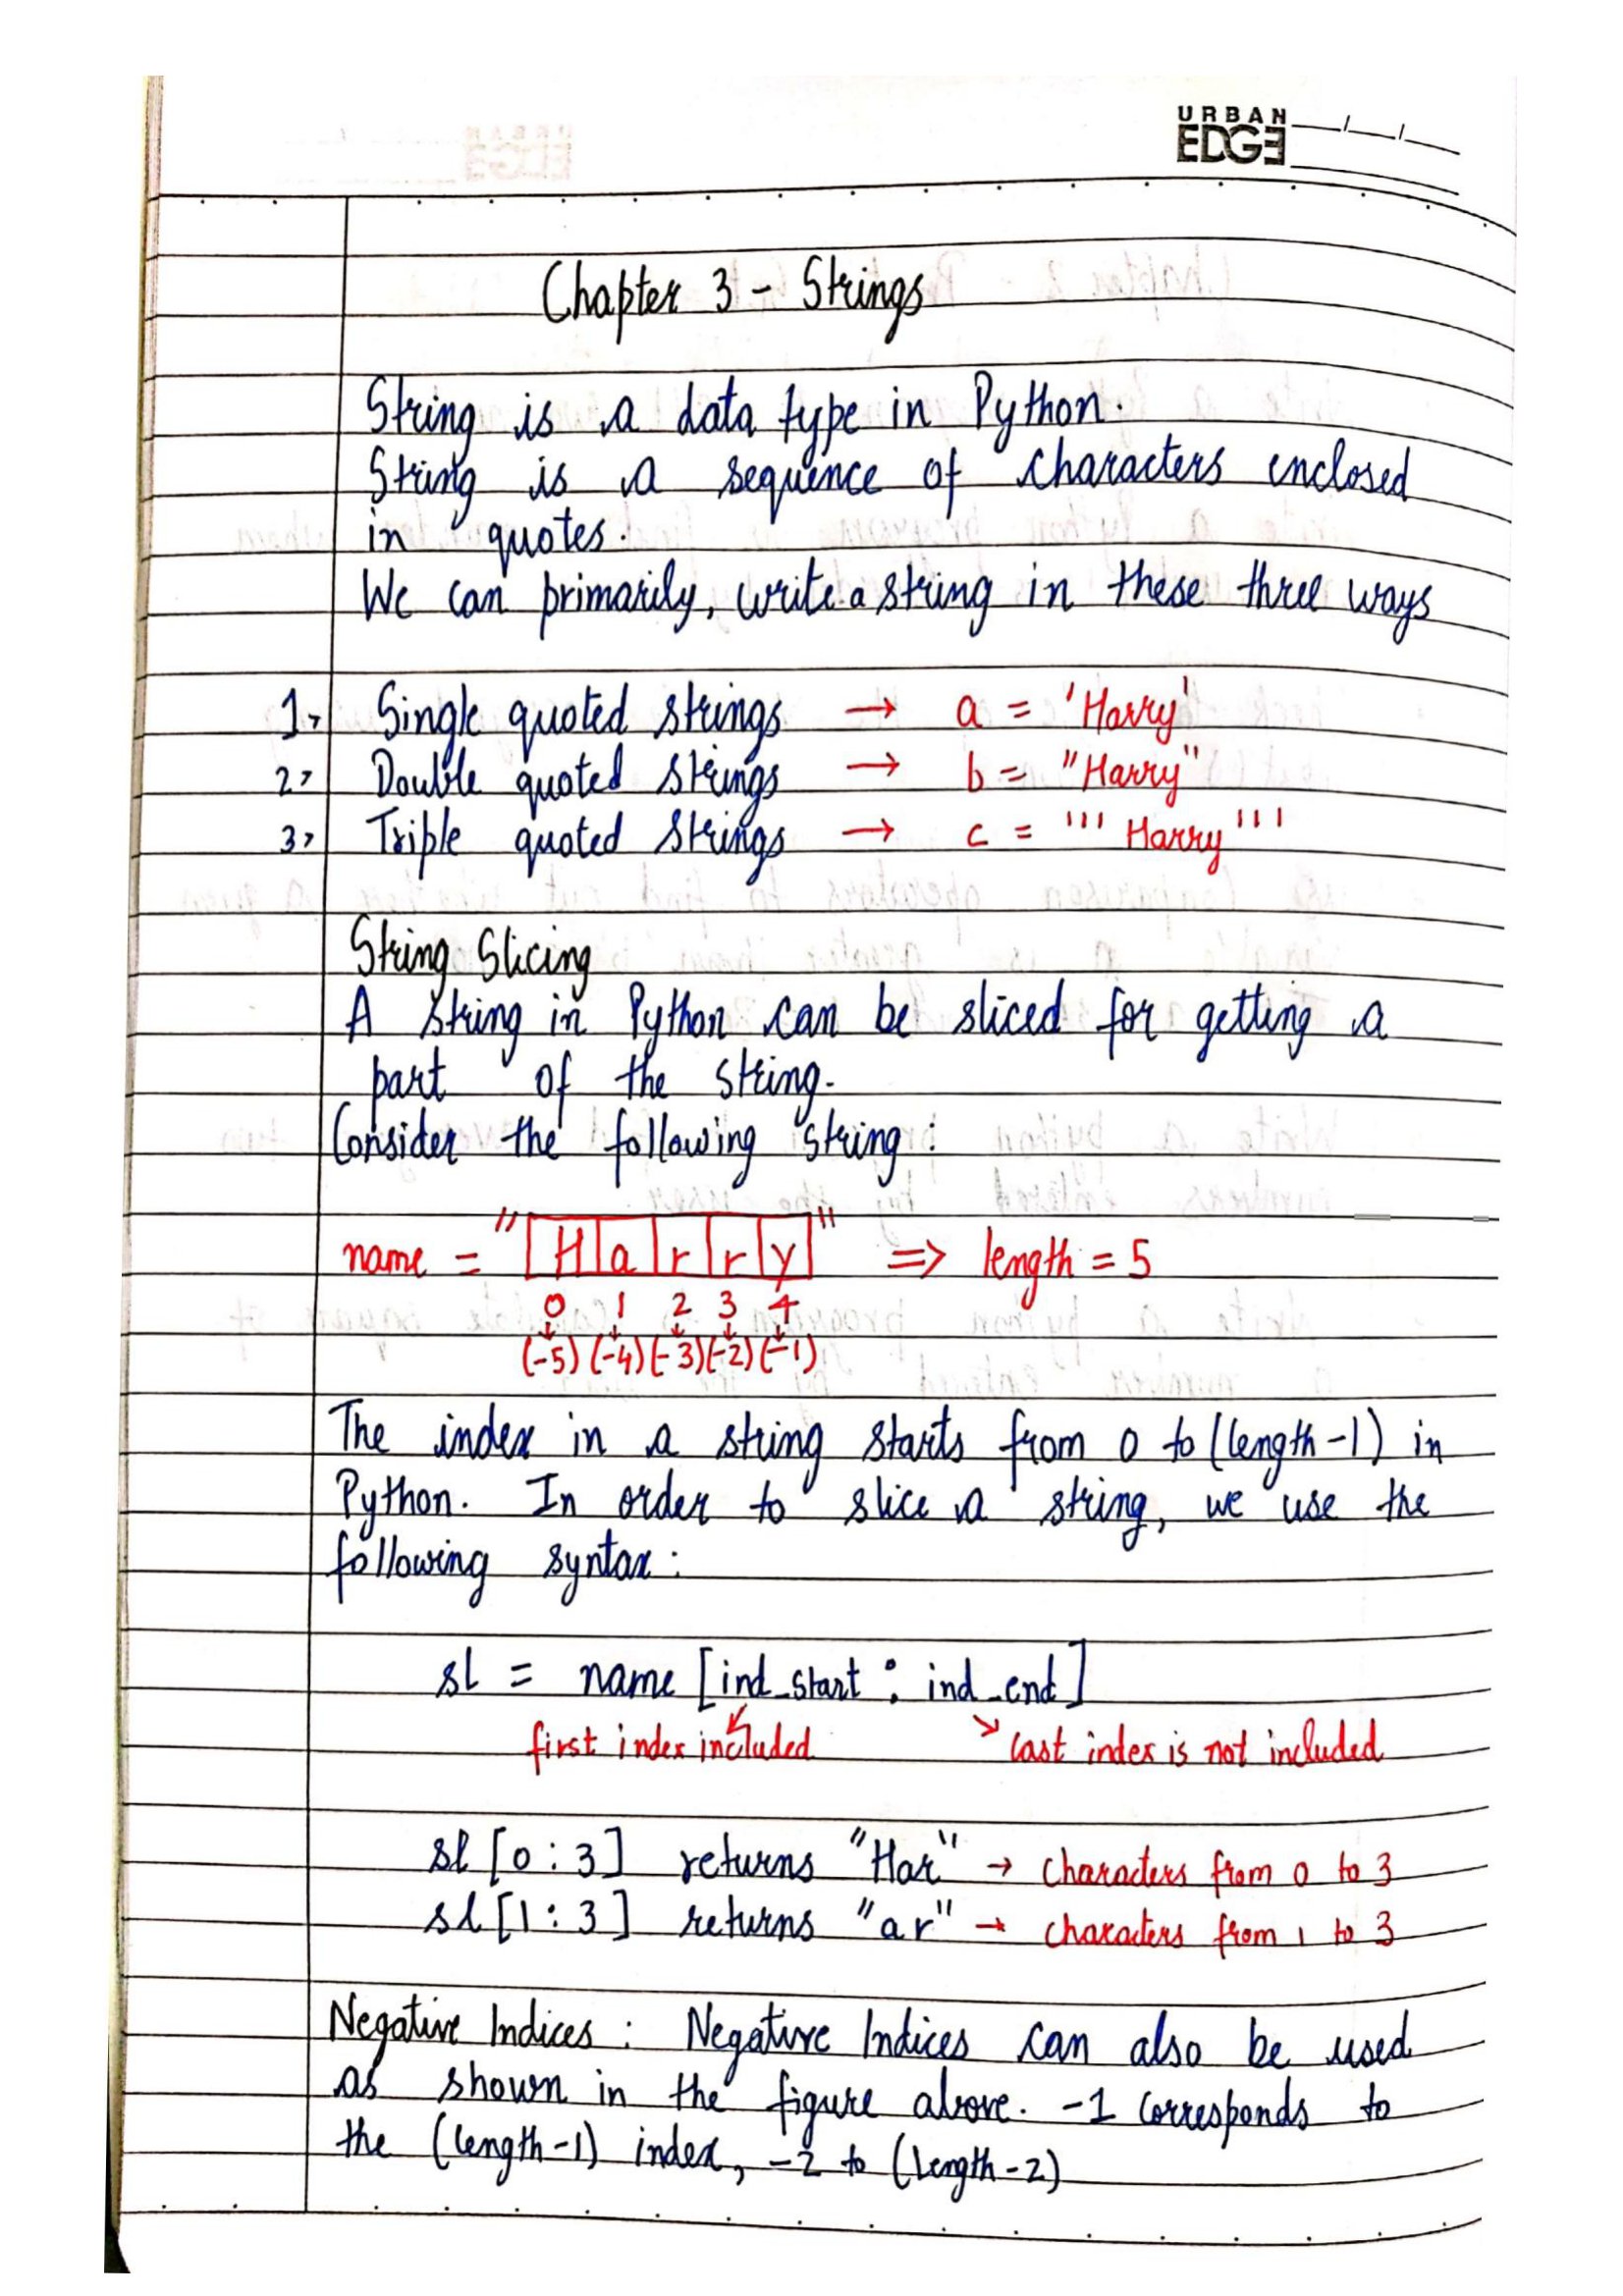 URBAN
EDGE
Chapter 3 - Strings
String is a data type in Python.
String is a sequence of characters enclosed
in quotes.
We can primarily, write a string in these three ways
1, Single quoted strings → a = 'Harry'
2, Double quoted strings → b = "Harry"
3, Triple quoted strings → c = ''' Harry '''
String Slicing
A string in Python can be sliced for getting a
part of the string.
Consider the following string :
name = "Harry" => length = 5
0 1 2 3 4
(-5) (-4) (-3) (-2) (-1)
The index in a string starts from 0 to (length-1) in
Python. In order to slice a string, we use the
following syntax :
sl = name [ind_start : ind_end]
first index included last index is not included
sl [0 : 3] returns "Har" → characters from 0 to 3
sl [1 : 3] returns "ar" → characters from 1 to 3
Negative Indices : Negative Indices can also be used
as shown in the figure above. -1 corresponds to
the (length-1) index, -2 to (length-2)